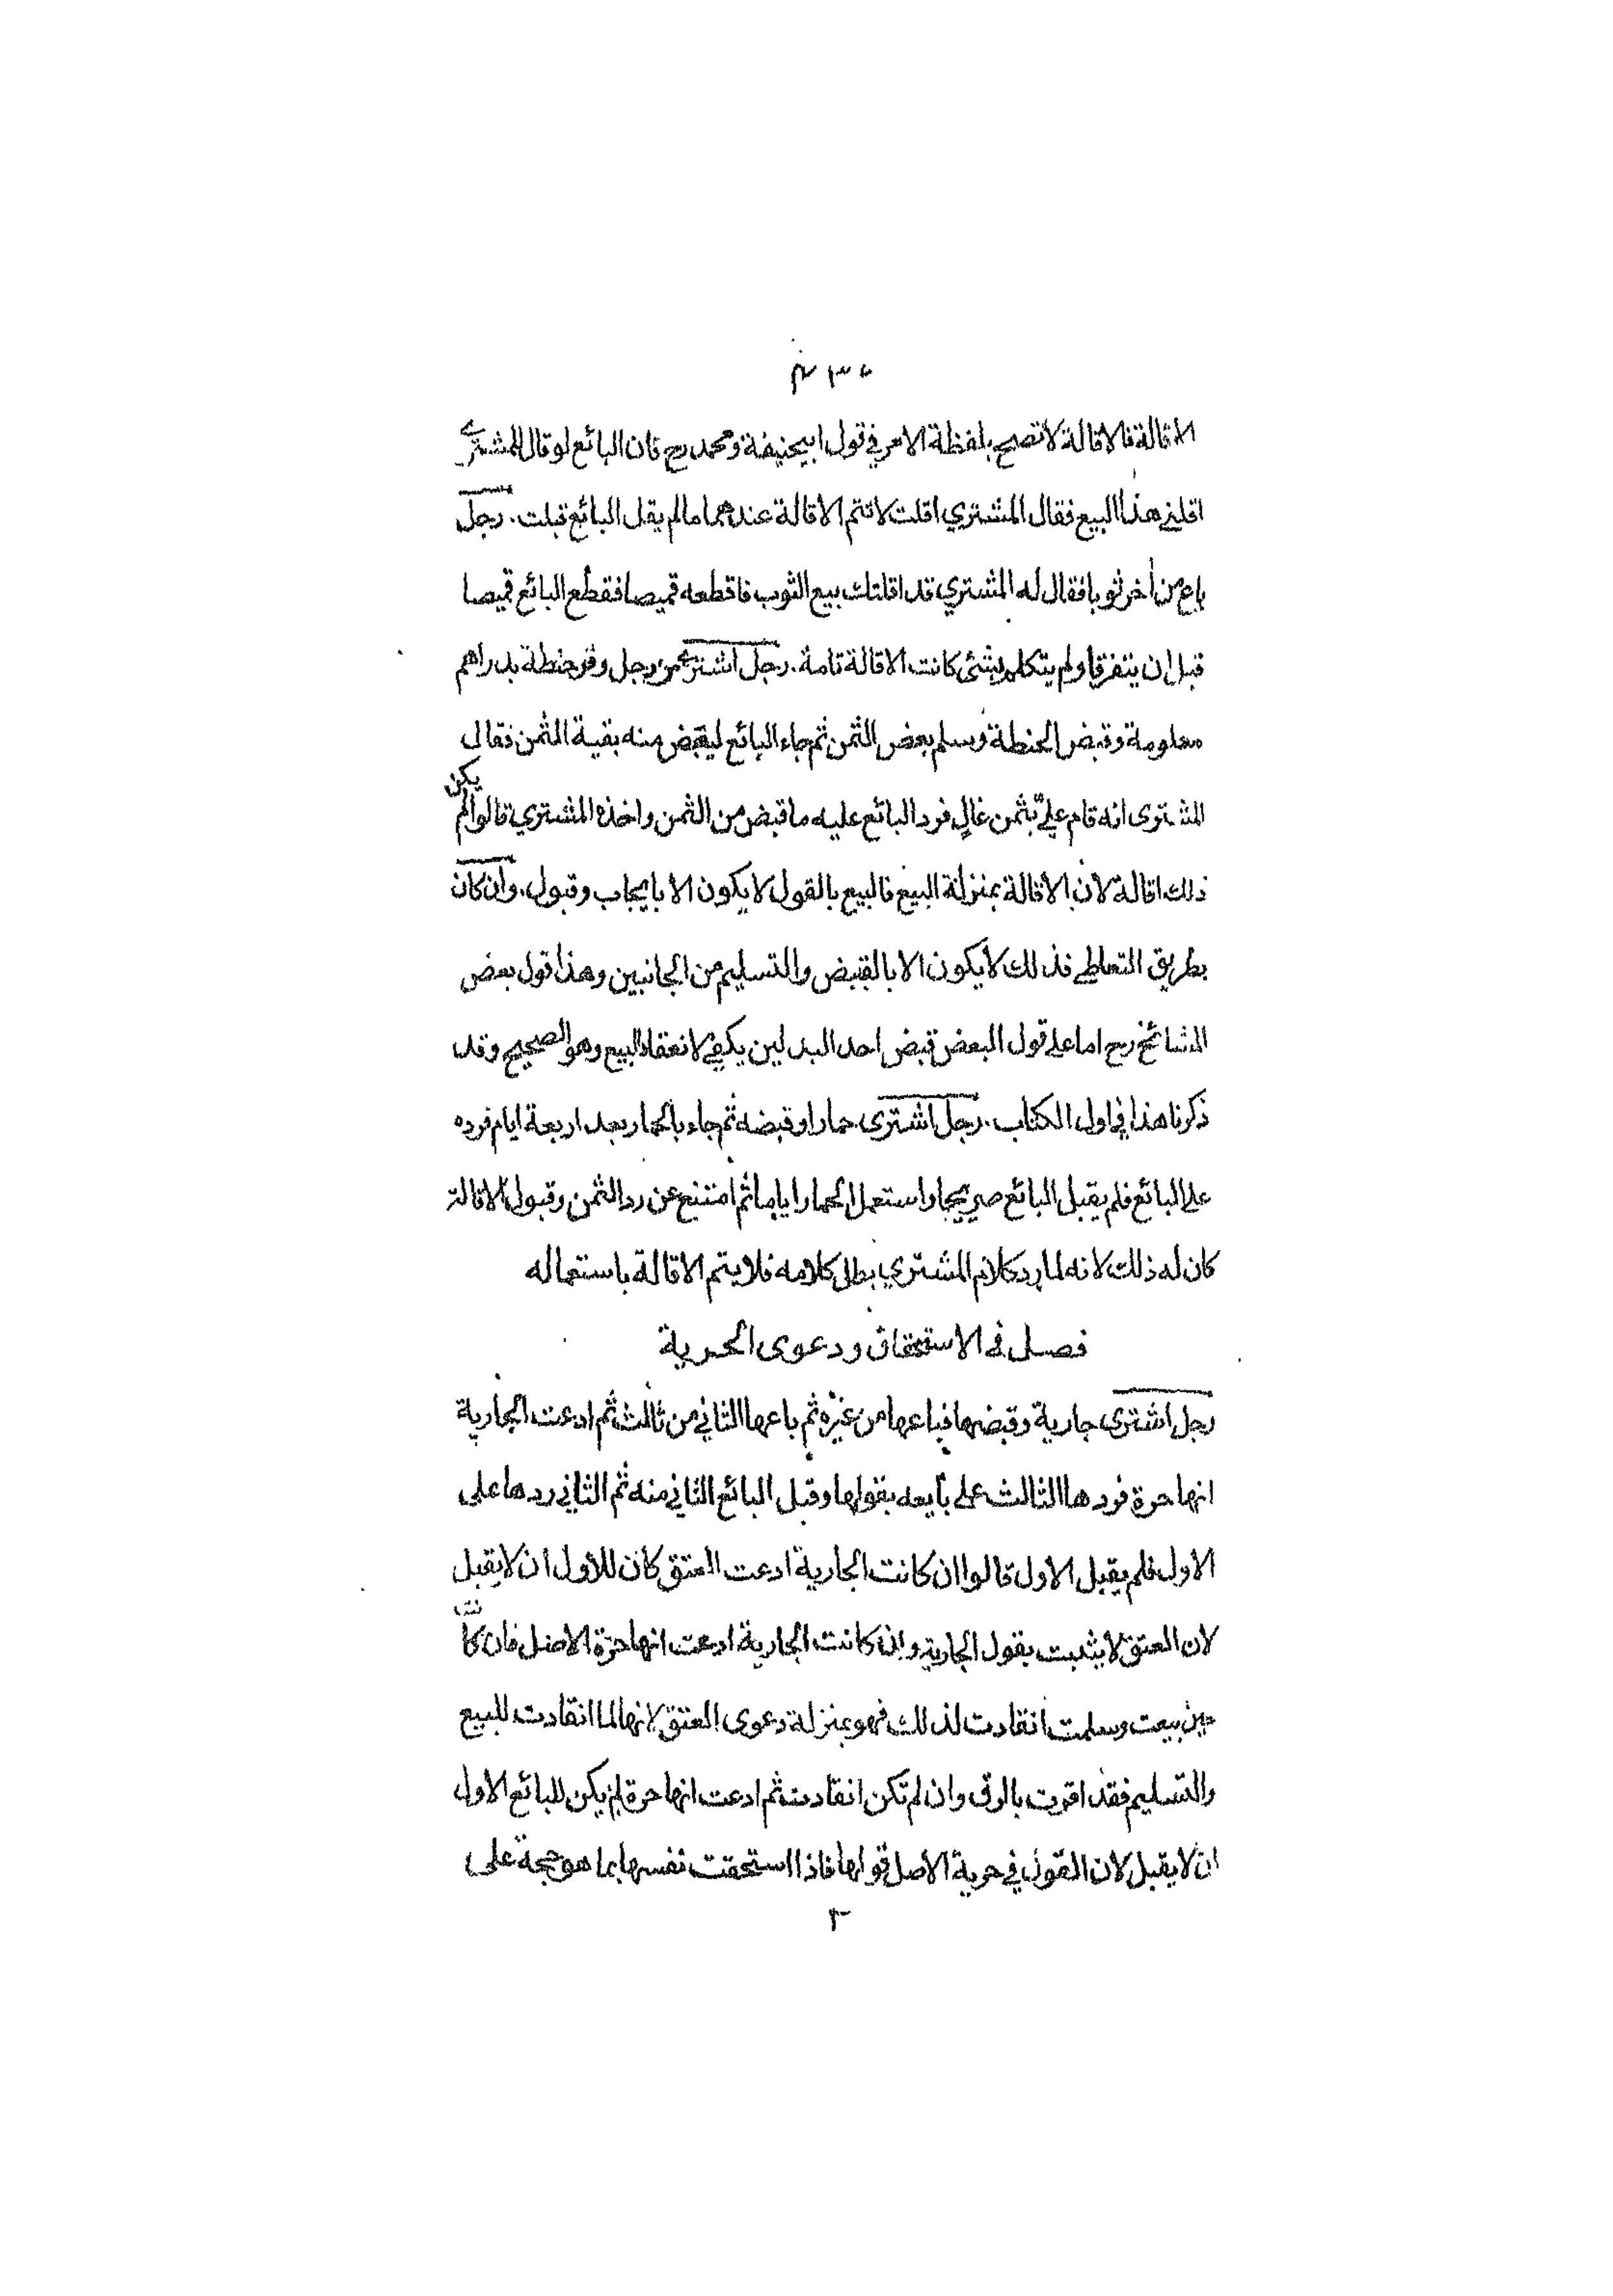 الاقالة فالاقالة لا تصح بلفظة الامر في قول ابيحنيفة ومحمد رح فان البائع لو قال للمشتري
اقلني هذا البيع فقال المشتري اقلت لا تتم الاقالة عندهما ما لم يقل البائع قبلت . رجل
باع من أخر ثوبا فقال له المشتري قد اقلتك بيع الثوب فاقطعه قميصا فقطع البائع قميصا
قبل ان يتفرقا ولم يتكلم بشئ كانت الاقالة تامة . رجل اشترى من رجل وقر حنطة بدراهم
معلومة وقبض الحنطة وسلم بعض الثمن ثم جاء البائع ليقبض منه بقية الثمن فقال
المشترى انه قام عليّ بثمن غالٍ فرد البائع عليه ما قبض من الثمن واخذه المشتري قالوا لم يكن
ذلك اقالة لان الاقالة بمنزلة البيع فالبيع بالقول لا يكون الا بايجاب وقبول . وان كان
بطريق التعاطي فذلك لا يكون الا بالقبض والتسليم من الجانبين وهذا قول بعض
المشائخ رح اما على قول البعض قبض احد البدلين يكفي لانعقاد البيع وهو الصحيح وقد
ذكرنا هذا في اول الكتاب . رجل اشترى حمارا وقبضه ثم جاء بالحمار بعد اربعة ايام فرده
على البائع فلم يقبل البائع صريحا واستعمل الحمار اياما ثم امتنع عن رد الثمن وقبول الاقالة
كان له ذلك لانه لما رد كلام المشتري بطل كلامه فلا يتم الاقالة باستعماله
فصل في الاستحقاق ودعوى الحرية
رجل اشترى جارية وقبضها فباعها من غيره ثم باعها الثاني من ثالث ثم ادعت الجارية
انها حرة فردها الثالث على بايعه بقولها وقبل البائع الثاني منه ثم الثاني ردها على
الاول فلم يقبل الاول قالوا ان كانت الجارية ادعت العتق كان للأول ان لا يقبل
لان العتق لا يثبت بقول الجارية وان كانت الجارية ادعت انها حرة الاصل فان كانت
حين بيعت وسلمت انقادت لذلك فهو بمنزلة دعوى العتق لانها لما انقادت للبيع
والتسليم فقد اقرت بالرق وان لم تكن انقادت ثم ادعت انها حرة لم يكن للبائع الاول
ان لا يقبل لان القول في حرية الاصل قولها فاذا استحقت نفسها بما هو حجة على